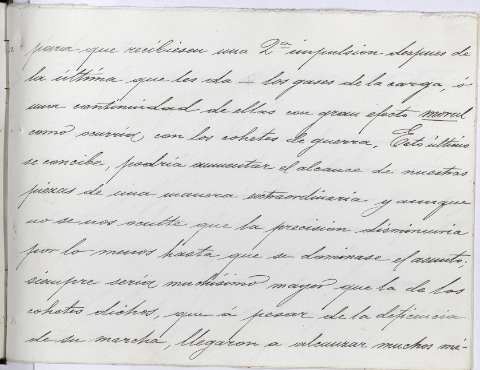 para que recibiesen una 2ª impulsion despues de
la última que les da los gases de la carga, ó
una continuidad de ellas con gran efecto moral
como ocurria, con los cohetes de guerra. Esto último
se concibe, podria aumentar el alcance de nuestras
piezas de una manera extraordinaria y aunque
no se nos oculte que la precision disminuiria
por lo menos hasta que se dominase el asunto;
siempre seria muchisimo mayor que la de los
cohetes dichos, que á pesar de la deficiencia
de su marcha, llegaron a alcanzar muchos mi-